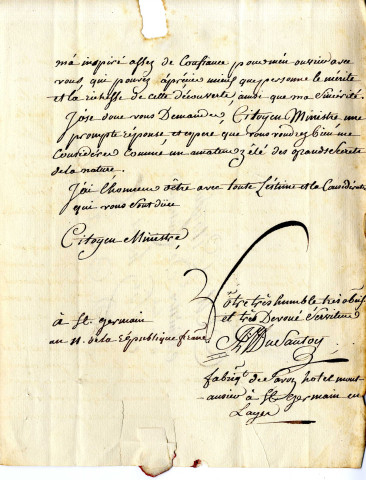 m'a inspiré assez de Confiance pour m'en ouvrir avec
vous qui pouvez aprécier mieux que personne le mérite
et la richesse de cette découverte, ainsi que ma Sincérité.
J'ose donc vous Demander, Citoyen Ministre une
prompte réponse et espere que vous voudrez bien me
Considérer Comme un amateur zélé des grands Secrets
de la nature.
J'ai l'honneur d'être avec toute l'éstime et la Considération
qui vous sont dûe
Citoyen Ministre,
Vôtre très humble très obéist
et très Devoué Serviteur
à St. germain
an 11. de la République franse
fabriqt de Savon hotel
à St germain en
Laye